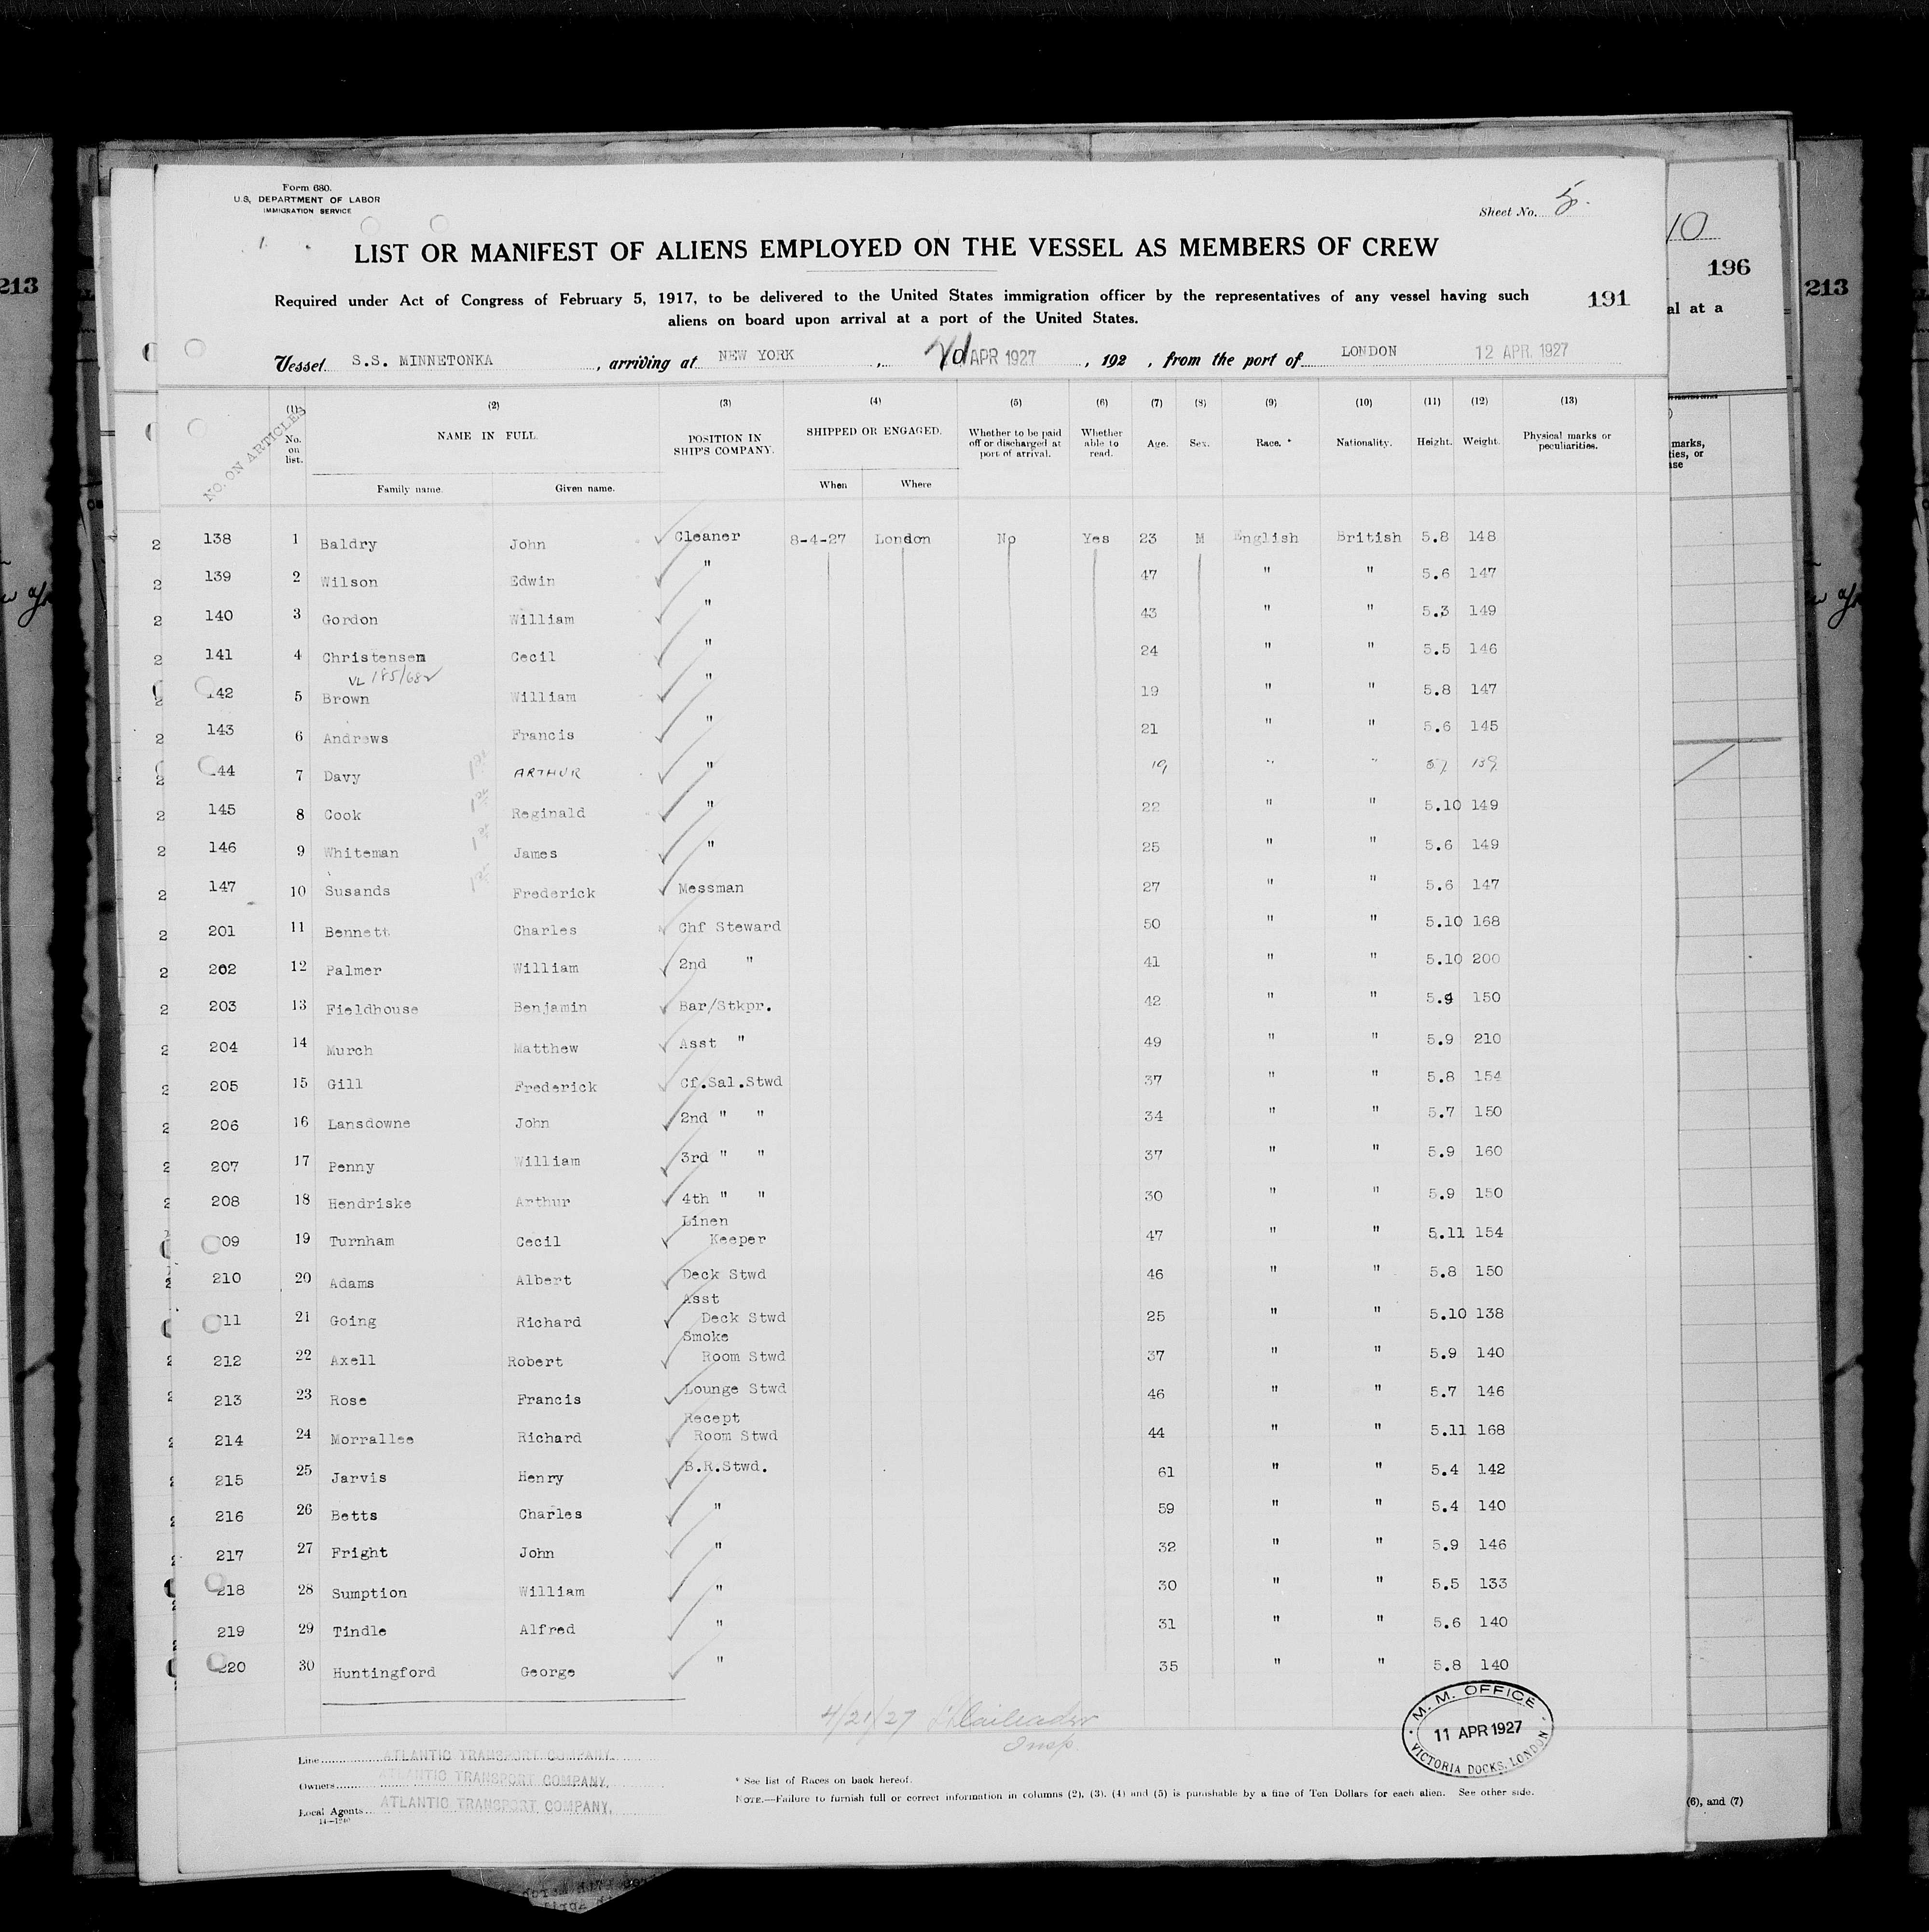 Form 680.
U.S. DEPARTMENT OF LABOR
IMMIGRATION SERVICE
Sheet No. 5.
10
LIST OR MANIFEST OF ALIENS EMPLOYED ON THE VESSEL AS MEMBERS OF CREW
196
213
213
Required under Act of Congress of February 5, 1917, to be delivered to the United States immigration officer by the representatives of any vessel having such
191
aliens on board upon arrival at a port of the United States.
al at a
Vessel S.S. MINNETONKA, arriving at NEW YORK, APR 1927, 192 , from the port of LONDON 12 APR. 1927
NO. ON ARTICLES
(1) (2) (3) (4) (5) (6) (7) (8) (9) (10) (11) (12) (13)
No. on list. NAME IN FULL. POSITION IN SHIP'S COMPANY. SHIPPED OR ENGAGED. Whether to be paid off or discharged at port of arrival. Whether able to read. Age. Sex. Race. * Nationality. Height. Weight. Physical marks or peculiarities.
Family name. Given name. When Where
138 1 Baldry John Cleaner 8-4-27 London No Yes 23 M English British 5.8 148
139 2 Wilson Edwin " 47 " " 5.6 147
140 3 Gordon William " 43 " " 5.3 149
141 4 Christensen Cecil " 24 " " 5.5 146
VL 185/682
142 5 Brown William " 19 " " 5.8 147
143 6 Andrews Francis " 21 " " 5.6 145
144 7 Davy ARTHUR " 19 " " 5.7 139
145 8 Cook Reginald " 22 " " 5.10 149
146 9 Whiteman James " 25 " " 5.6 149
147 10 Susands Frederick Messman 27 " " 5.6 147
201 11 Bennett Charles Chf Steward 50 " " 5.10 168
202 12 Palmer William 2nd " 41 " " 5.10 200
203 13 Fieldhouse Benjamin Bar/Stkpr. 42 " " 5.9 150
204 14 Murch Matthew Asst " 49 " " 5.9 210
205 15 Gill Frederick Cf.Sal.Stwd 37 " " 5.8 154
206 16 Lansdowne John 2nd " " 34 " " 5.7 150
207 17 Penny William 3rd " " 37 " " 5.9 160
208 18 Hendriske Arthur 4th " " 30 " " 5.9 150
09 19 Turnham Cecil Linen Keeper 47 " " 5.11 154
210 20 Adams Albert Deck Stwd 46 " " 5.8 150
11 21 Going Richard Asst Deck Stwd 25 " " 5.10 138
212 22 Axell Robert Smoke Room Stwd 37 " " 5.9 140
213 23 Rose Francis Lounge Stwd 46 " " 5.7 146
214 24 Morrallee Richard Recept Room Stwd 44 " " 5.11 168
215 25 Jarvis Henry B.R.Stwd. 61 " " 5.4 142
216 26 Betts Charles " 59 " " 5.4 140
217 27 Fright John " 32 " " 5.9 146
218 28 Sumption William " 30 " " 5.5 133
219 29 Tindle Alfred " 31 " " 5.6 140
220 30 Huntingford George " 35 " " 5.8 140
4/21/27
Insp.
M. M. OFFICE
11 APR 1927
VICTORIA DOCKS, LONDON
Line ATLANTIC TRANSPORT COMPANY.
Owners ATLANTIC TRANSPORT COMPANY.
Local Agents ATLANTIC TRANSPORT COMPANY.
* See list of Races on back hereof.
NOTE.—Failure to furnish full or correct information in columns (2), (3), (4) and (5) is punishable by a fine of Ten Dollars for each alien. See other side.
(6), and (7)